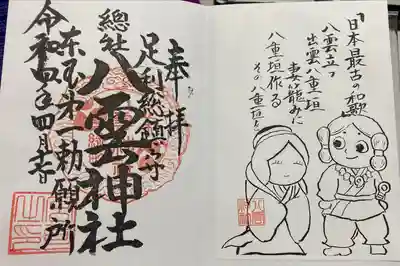 奉拝
足利総鎮守
總社 八雲神社
東国第一勅願所
令和四年四月吉日
「日本最古の和歌」
八雲立つ
出雲八重垣
妻籠みに
八重垣作る
その八重垣を